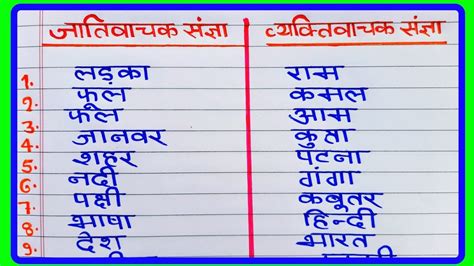 जातिवाचक संज्ञा व्यक्तिवाचक संज्ञा
1. लड़का राम
2. फूल कमल
3. फल आम
4. जानवर कुत्ता
5. शहर पटना
6. नदी गंगा
7. पक्षी कबूतर
8. भाषा हिन्दी
9. देश भारत